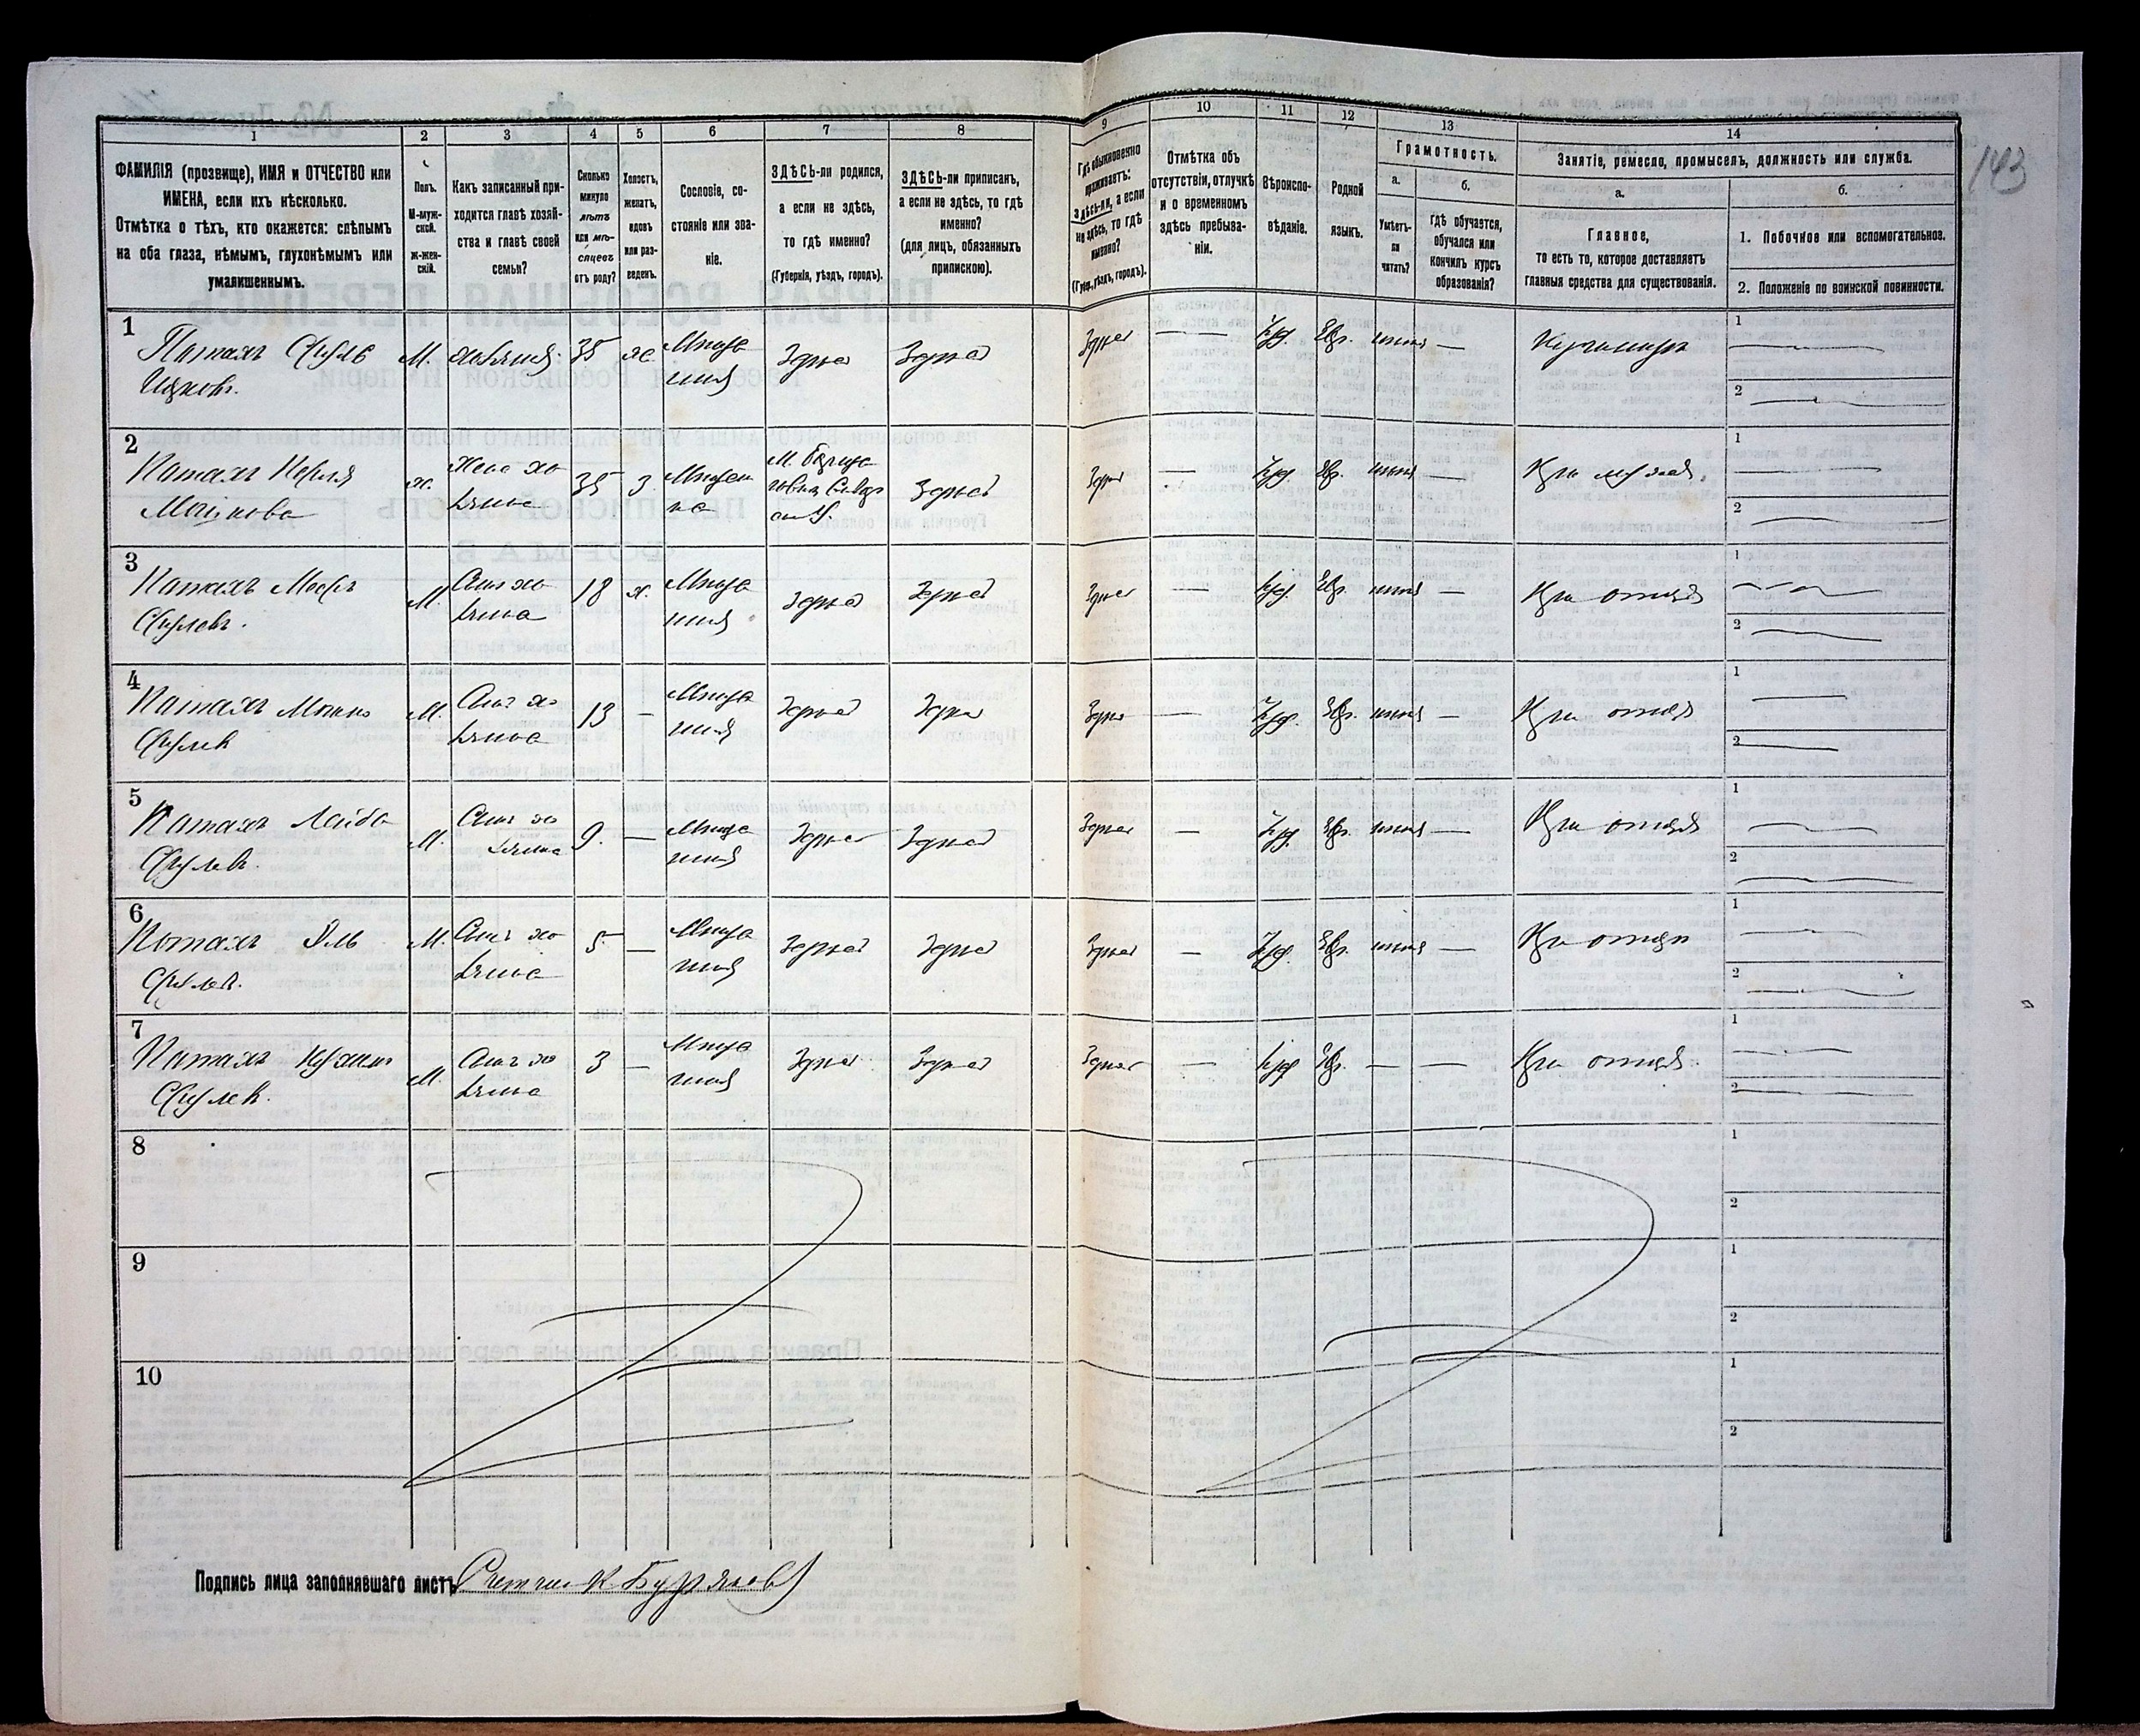 143
1 2 3 4 5 6 7 8 9 10 11 12 13 14
ФАМИЛІЯ (прозвище), ИМЯ и ОТЧЕСТВО или
ИМЕНА, если ихъ нѣсколько.
Отмѣтка о тѣхъ, кто окажется: слѣпымъ
на оба глаза, нѣмымъ, глухонѣмымъ или
умалишеннымъ.
Полъ.
М-муж-
ской.
ж-жен-
скій.
Какъ записанный при-
ходится главѣ хозяй-
ства и главѣ своей
семьи?
Сколько
минуло
лѣтъ
или мѣ-
сяцевъ
отъ роду?
Холостъ,
женатъ,
вдовъ
или раз-
веденъ.
Сословіе, со-
стояніе или зва-
ніе.
ЗДѢСЬ-ли родился,
а если не здѣсь,
то гдѣ именно?
(Губернія, уѣздъ, городъ).
ЗДѢСЬ-ли приписанъ,
а если не здѣсь, то гдѣ
именно?
(для лицъ, обязанныхъ
припискою).
Гдѣ обыкновенно
проживаетъ:
здѣсь-ли, а если
не здѣсь, то гдѣ
именно?
(Губерн., уѣздъ, городъ).
Отмѣтка объ
отсутствіи, отлучкѣ
и о временномъ
здѣсь пребыва-
ніи.
Вѣроиспо-
вѣданіе.
Родной
языкъ.
Грамотность.
а.
Умѣетъ-
ли
читать?
б.
гдѣ обучается,
обучался или
кончилъ курсъ
образованія?
Занятіе, ремесло, промыселъ, должность или служба.
а.
Главное,
то есть то, которое доставляетъ
главныя средства для существованія.
б.
1. Побочное или вспомогательное.
2. Положеніе по воинской повинности.
1
Патахъ Сруль М. хозяинъ 35 ж. Мѣща здѣсь здѣсь здѣсь — Іуд. Евр. — 1
Ицковъ. нинъ 2
2
Патахъ Перля ж. Жена хо 35 з. Мѣщан М. здѣсь здѣсь — Іуд. Евр. — При мужѣ 1
Мошкова зяина ка 2
3
Патахъ М. Сынъ хо 18 х. Мѣща здѣсь здѣсь здѣсь — Іуд. Евр. — При отцѣ 1
Срулевъ. зяина нинъ 2
4
Патахъ М. Сынъ хо 13 — Мѣща здѣсь здѣсь здѣсь — Іуд. Евр. — При отцѣ 1
Срулев зяина нинъ 2
5
Патахъ Лейба М. Сынъ хо 9. — Мѣща здѣсь здѣсь здѣсь — Іуд. Евр. — При отцѣ 1
Срулев. зяина нинъ 2
6
Патахъ Эль М. Сынъ хо 5 — Мѣща здѣсь здѣсь здѣсь — Іуд. Евр. — При отцѣ 1
Срулев. зяина нинъ 2
7
Патахъ М. Сынъ хо 3 — Мѣща здѣсь здѣсь здѣсь — Іуд. Евр. — — При отцѣ 1
Срулев. зяина нинъ 2
8 1
2
9 1
2
10 1
2
Подпись лица заполнявшаго листъ Счетчик